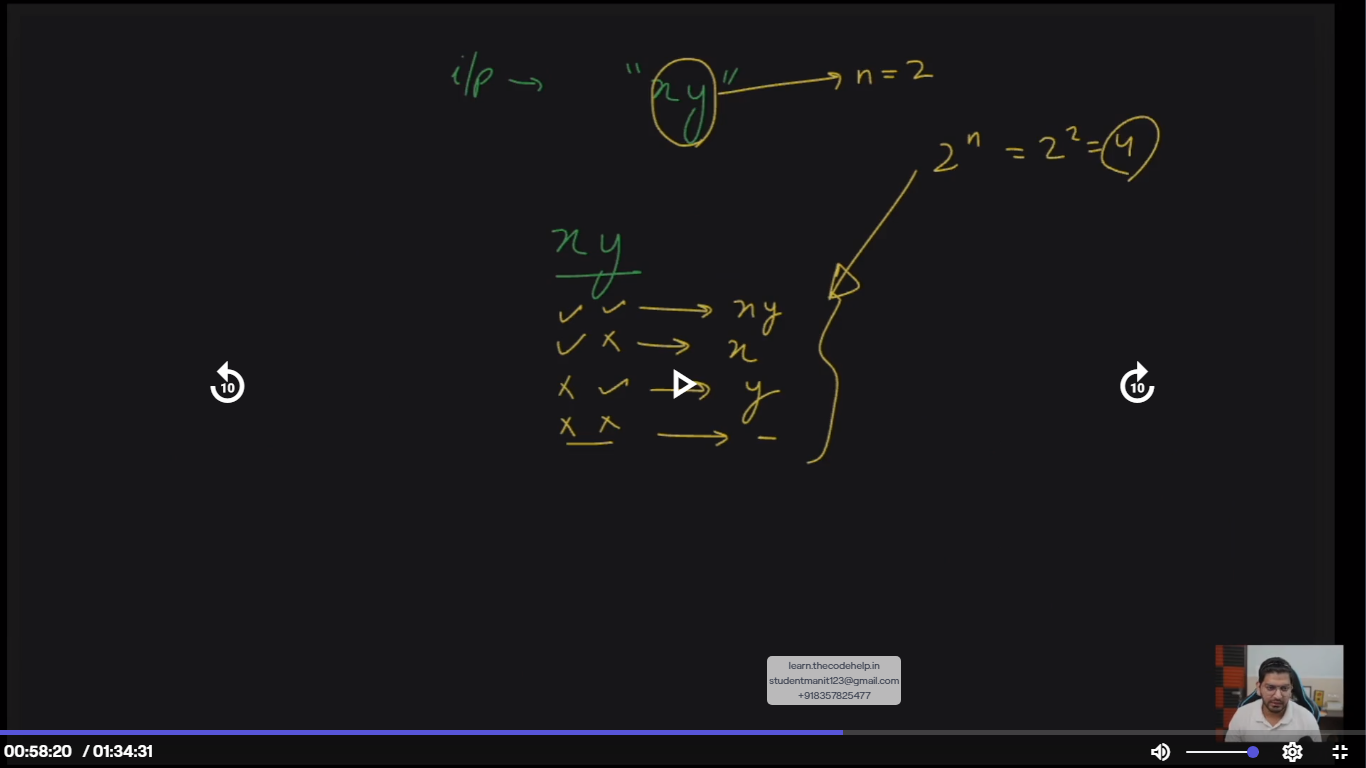 i/p → "xy" → n = 2
2ⁿ = 2² = 4
xy
✓ ✓ → xy
✓ x → x
x ✓ → y
x x → -
10
10
learn.thecodehelp.in
studentmanit123@gmail.com
+918357825477
00:58:20 / 01:34:31